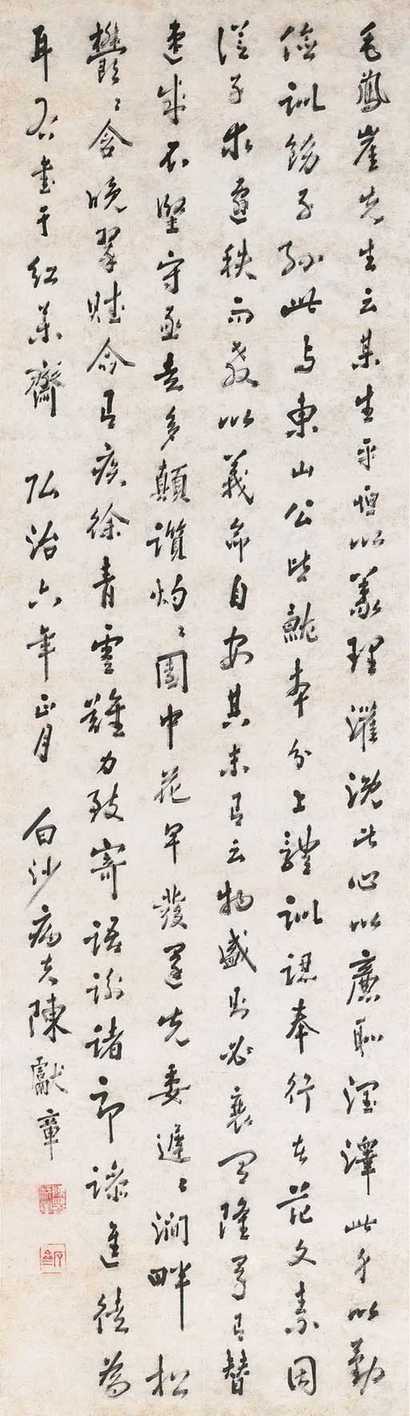 毛鳳崖先生云某生平恒以義理灌洗此心以廉恥潤澤此身以勤
儉訓飭子孫此與東山公皆就本分上體訓認奉行在范文素因
從子求遷秩而教以義命自安其末有云物盛則必衰有隆等有替
速成不堅守亟走多顛躓灼灼園中花早發還先委遲遲澗畔松
鬱鬱含晚翠賦命有疾徐青雲難力致寄語謝諸郎躁進徒為
耳 書于紅葉齋 弘治六年正月 白沙病夫陳獻章